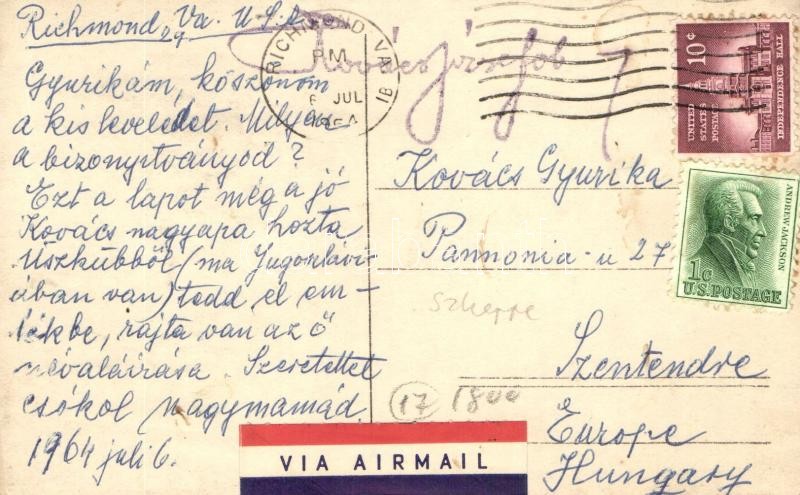 Richmond, Va. U.S.A
RICHMOND VA.
PM
6 JUL
1964
1B
Kovács József
10¢
UNITED STATES POSTAGE
INDEPENDENCE HALL
Gyurikám, köszönöm
a kis leveledet. Milyen
a bizonyítványod?
Ezt a lapot még a jó
Kovács nagyapa hozta
Üszkübből (ma Jugoszlávi-
ában van) tedd el em-
lékbe, rajta van az ő
névaláírása. Szeretettel
csókol nagymamád.
1964 juli 6.
Kovács Gyurika
Pannonia-u 27
Szentendre
Europe
Hungary
ANDREW JACKSON
1c
U.S. POSTAGE
17
1800
VIA AIRMAIL